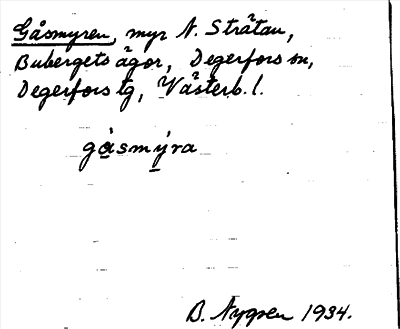 Gåsmyren, myr N. Stråtan,
Bubergets ägor, Degerfors sn,
Degerfors tg, Västerb. l.
gå̀smýra
B. Nygren 1934.